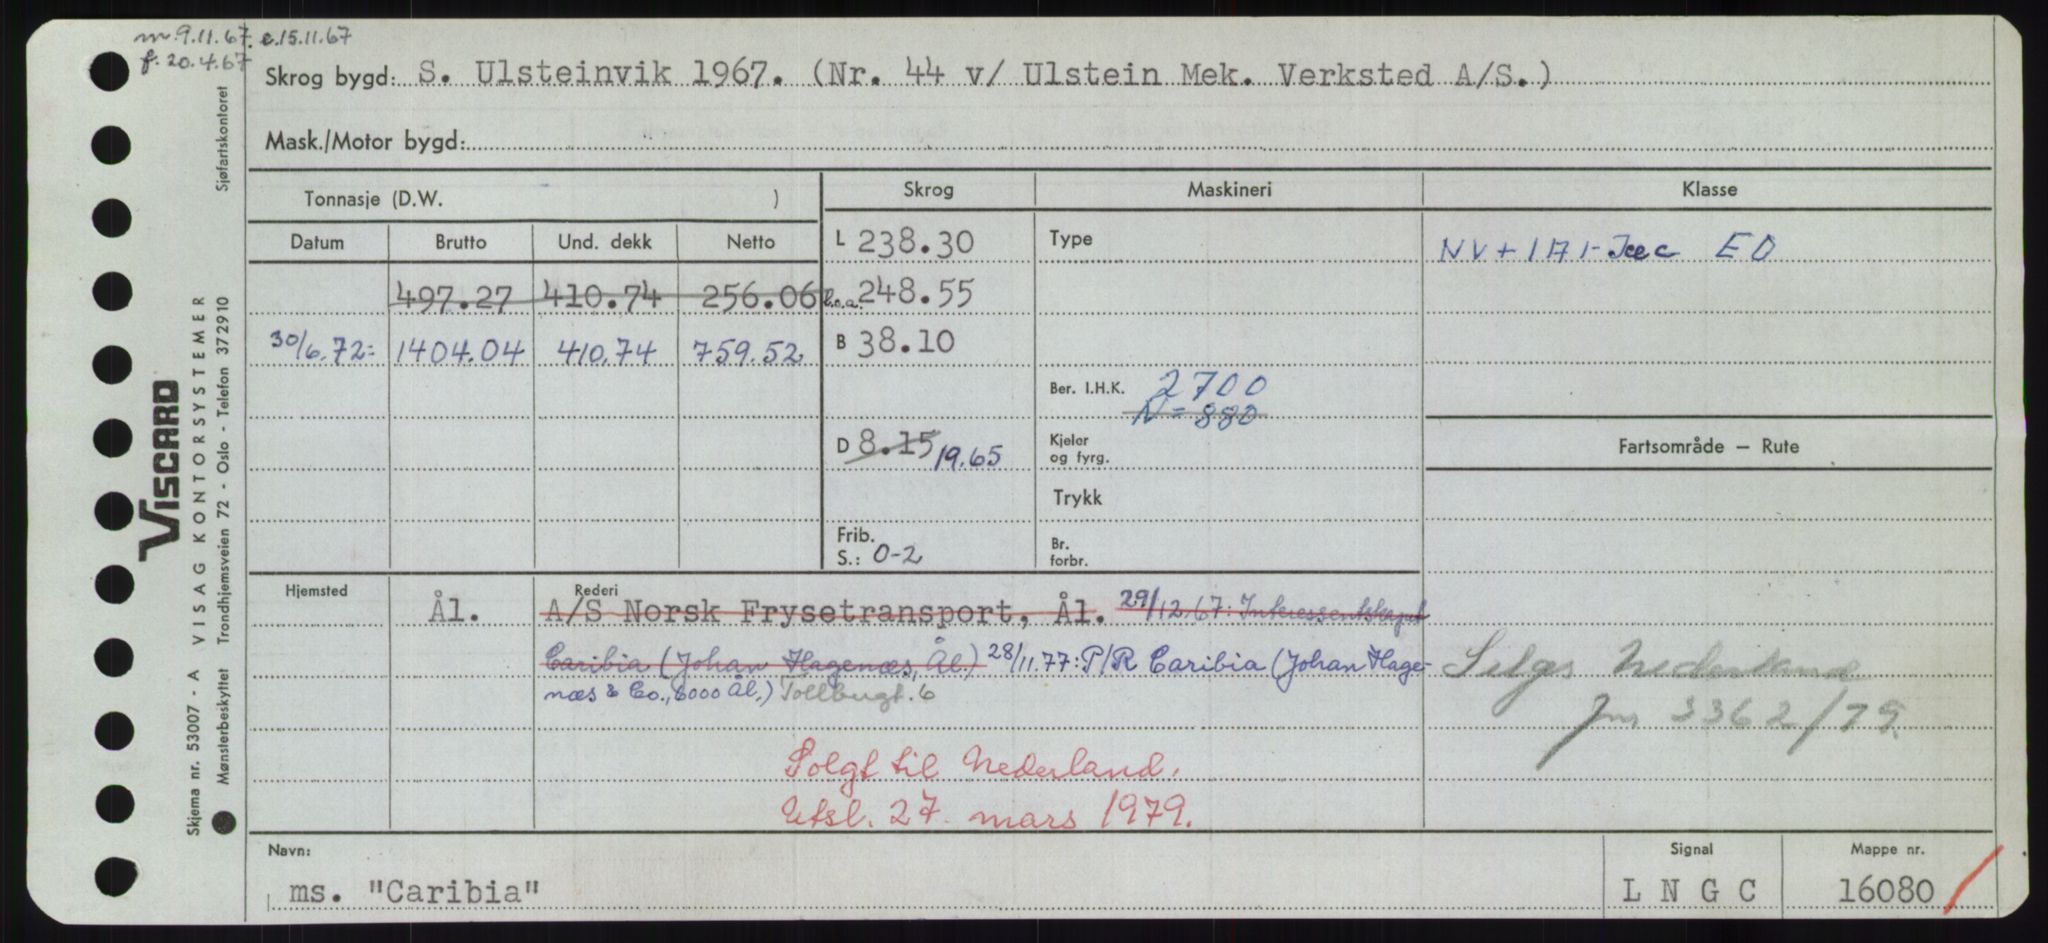 m. 9.11.67. e. 15.11.67
f. 20.4.67
Skrog bygd: S. Ulsteinvik 1967. (Nr. 44 v/ Ulstein Mek. Verksted A/S.)
Mask./Motor bygd:
Tonnasje (D.W. )
Skrog
Maskineri
Klasse
Datum Brutto Und. dekk Netto
L 238.30
Type
NV + 1A1- Ice C EO
497.27 410.74 256.06
l.o.a. 248.55
30/6.72: 1404.04 410.74 759.52
B 38.10
Ber. I.H.K. 2700
N = 880
D 8.15 19.65
Kjeler
og fyrg.
Fartsområde — Rute
Trykk
Frib.
S.: 0-2
Br.
forbr.
Hjemsted
Rederi
Ål.
A/S Norsk Frysetransport, Ål. 29/12.67: Interessentskapet
Caribia (Johan Hagenæs, Ål.) 28/11.77: P/R Caribia (Johan Hage-
næs & Co., 6000 Ål.) Tollbugt. 6
Selges Nederland
jnr 3362/79.
Solgt til Nederland.
Utsl. 27. mars 1979.
Navn:
ms. "Caribia"
Signal
L N G C
Mappe nr.
16080
VISCARD
Skjema nr. 53007 - A VISAG KONTORSYSTEMER
Mønsterbeskyttet Trondhjemsveien 72 - Oslo - Telefon 372910 Sjøfartskontoret